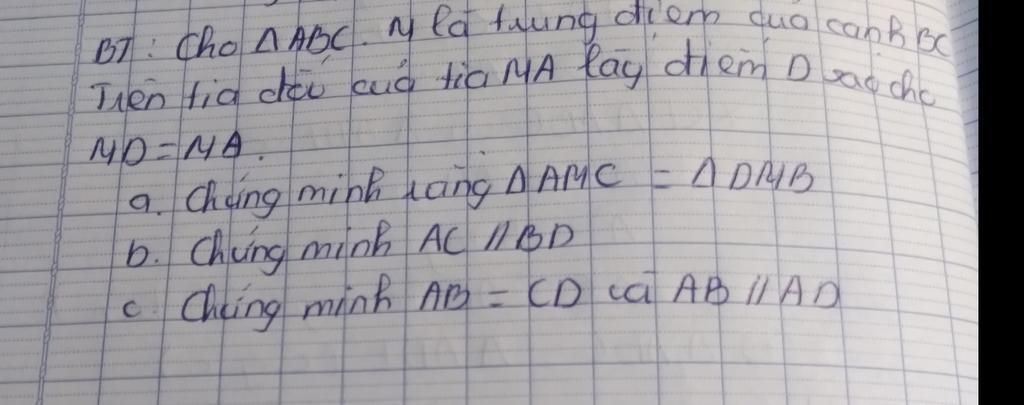 BT: Cho ΔABC. M là trung điểm của cạnh BC
Trên tia đối của tia MA lấy điểm D sao cho
MD = MA.
a. Chứng minh rằng ΔAMC = ΔDMB
b. Chứng minh AC // BD
c. Chứng minh AB = CD và AB // AD